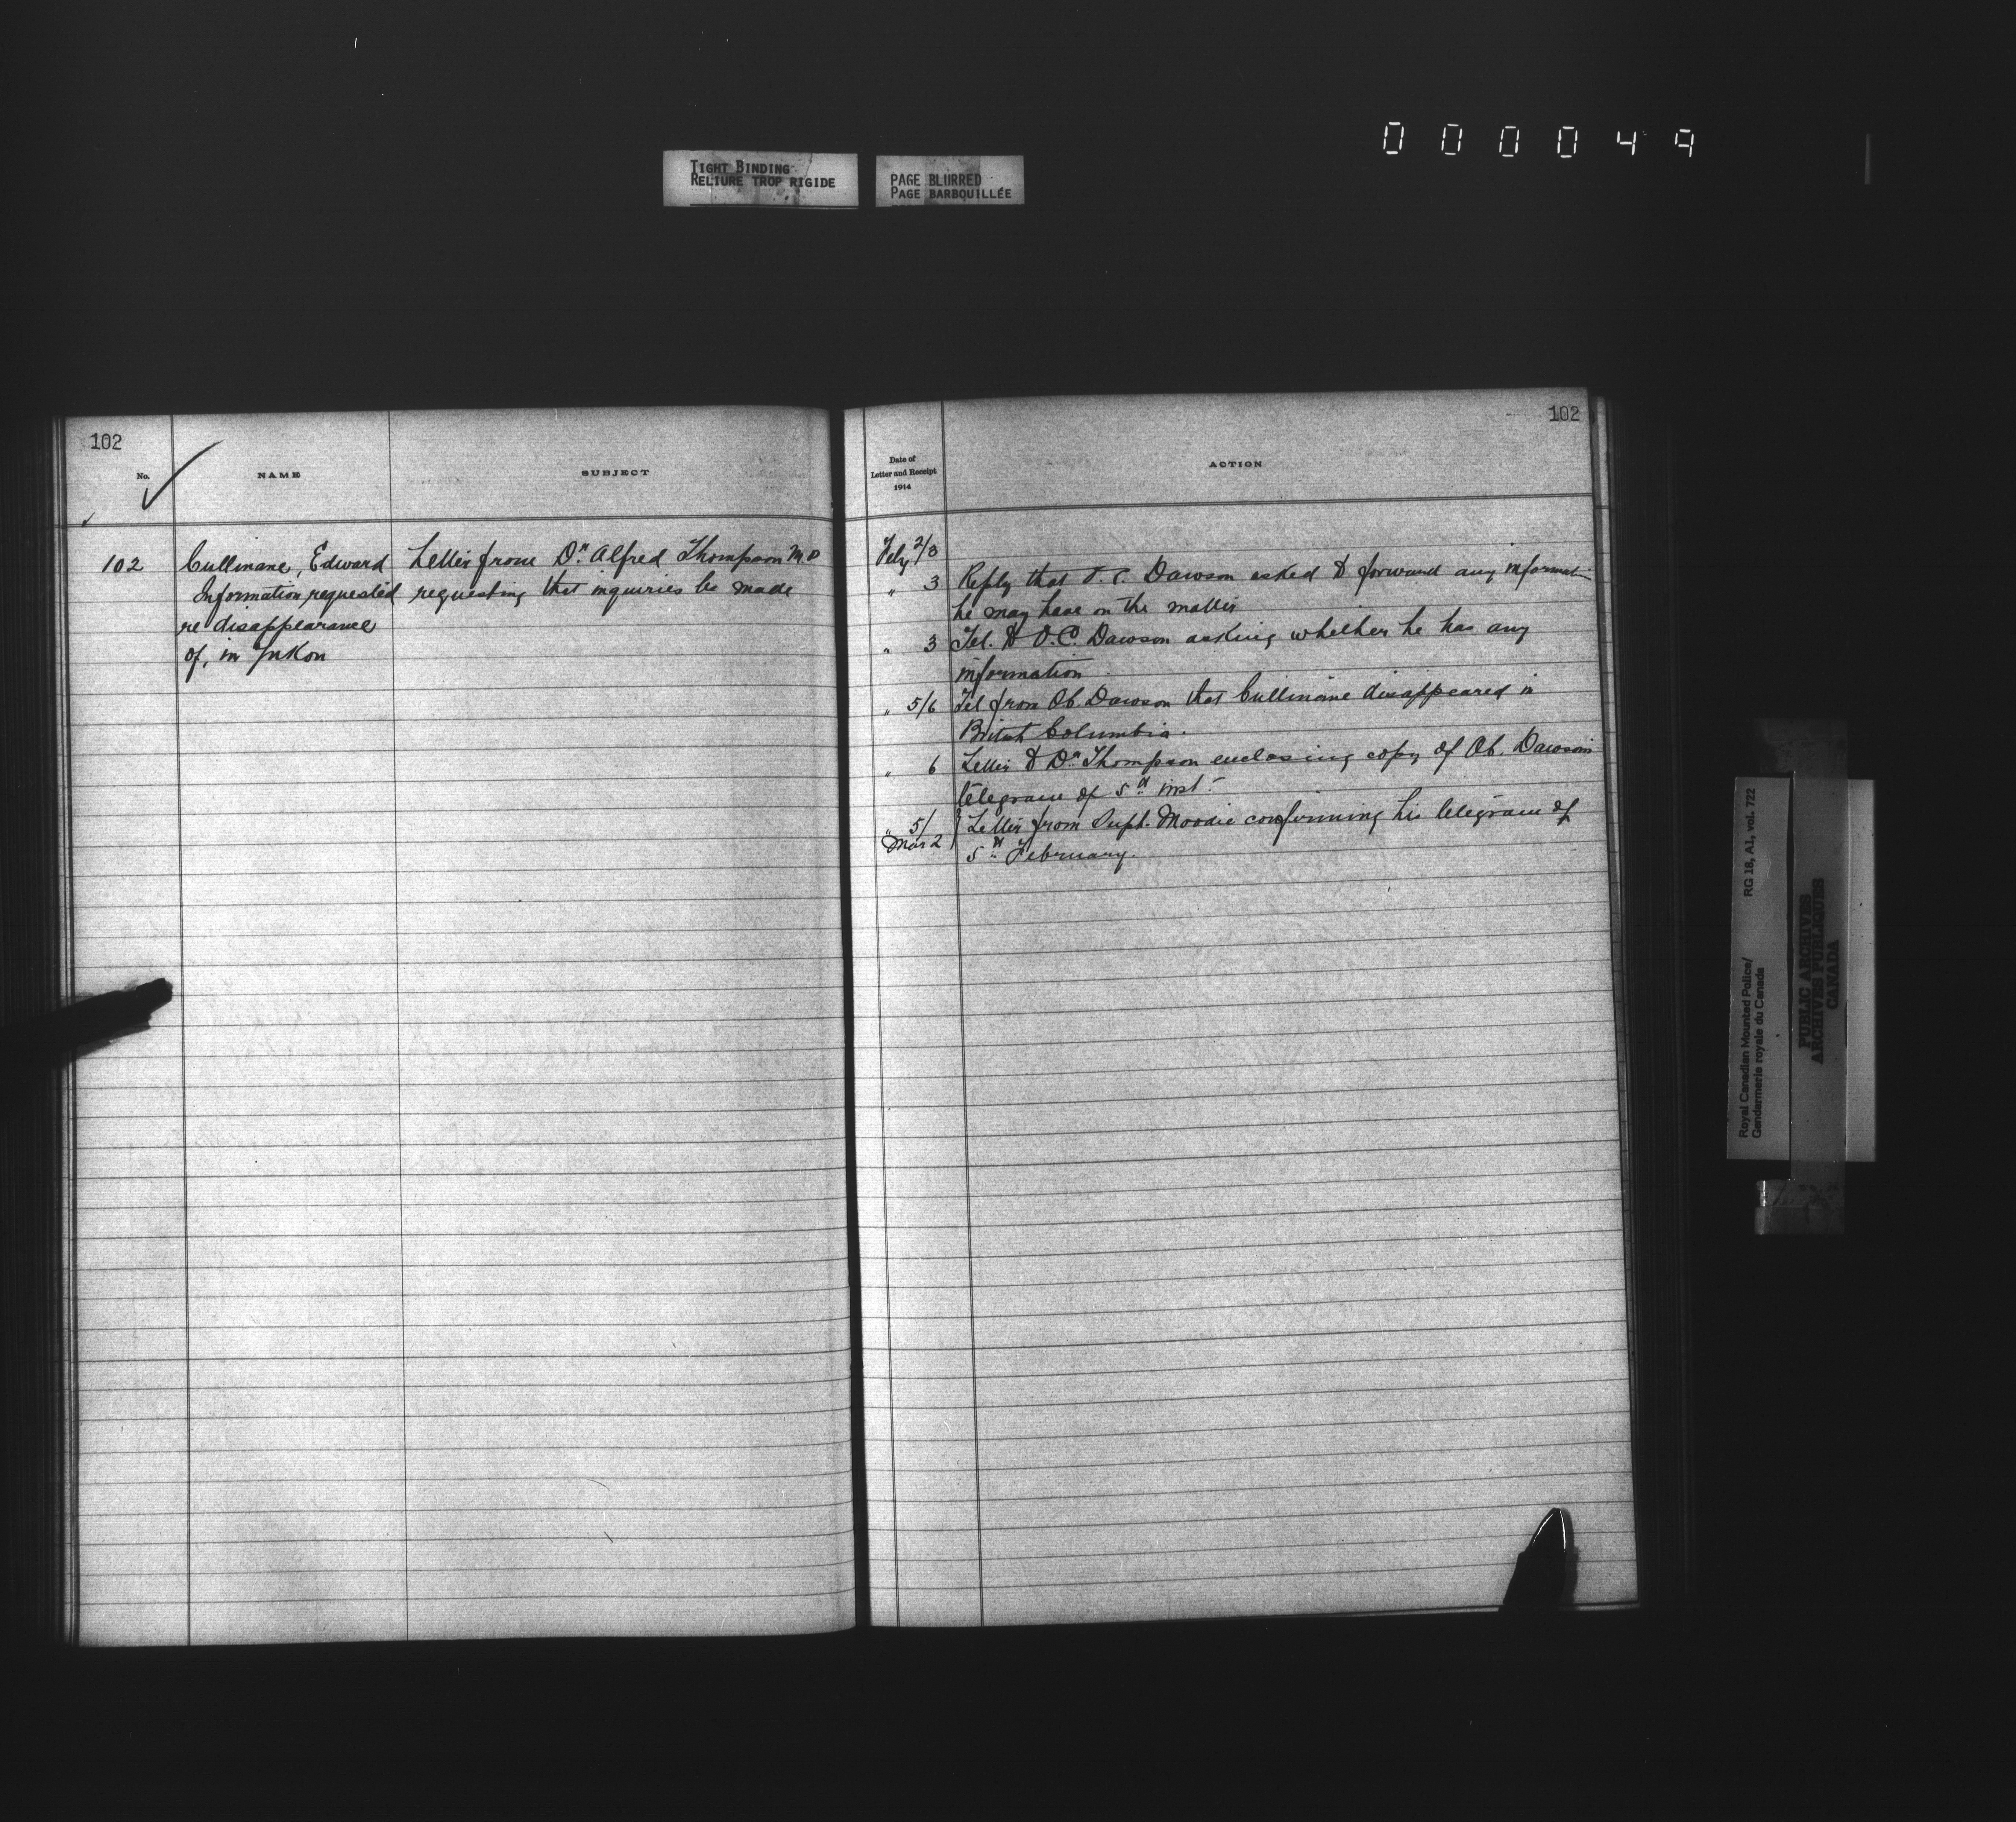 000049
TIGHT BINDING
RELIURE TROP RIGIDE
PAGE BLURRED
PAGE BARBOUILLÉE
102
No.
NAME
SUBJECT
102 Cullinane, Edward Letter from Dr. Alfred Thompson M.P
Information requested requesting that inquiries be made
re disappearance
of, in Yukon
102
Date of
Letter and Receipt
1914
ACTION
Feby 2/3
" 3 Reply that O.C. Dawson asked to forward any information
he may have on the matter
" 3 Tel. to O.C. Dawson asking whether he has any
information
" 5/6 Tel from OC. Dawson that Cullinane disappeared in
British Columbia.
" 6 Letter to Dr Thompson enclosing copy of OC. Dawson's
telegram of 5th inst.
" 5/ Letter from Supt. Moodie confirming his telegram of
Mar 2 5th February.
Royal Canadian Mounted Police/
Gendarmerie royale du Canada
RG 18, A1, vol. 722
PUBLIC ARCHIVES
ARCHIVES PUBLIQUES
CANADA